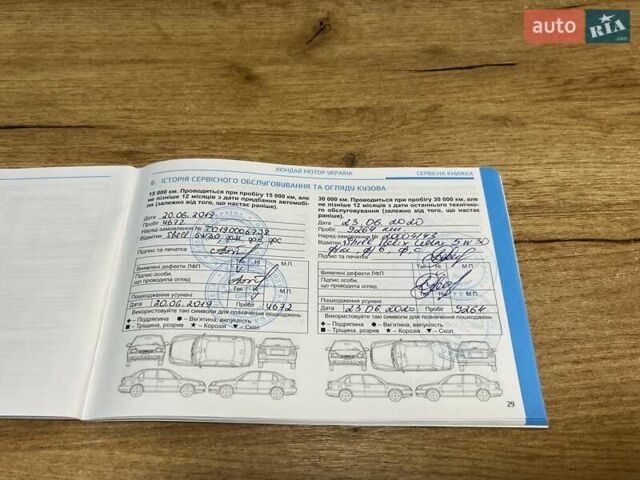 auto RIA.com
ХЮНДАЙ МОТОР УКРАЇНА
СЕРВІСНА КНИЖКА
6. ІСТОРІЯ СЕРВІСНОГО ОБСЛУГОВУВАННЯ ТА ОГЛЯДУ КУЗОВА
15 000 км. Проводиться при пробігу 15 000 км, але
не пізніше 12 місяців з дати придбання автомобі-
ля (залежно від того, що настає
раніше).
Дата 20.06.2019
Пробіг 4672
Наряд-замовлення №
Відмітки Shell 5W30,
Підпис та печатка
Так Ні
Виявлені дефекти ЛФП
Підпис особи,
що проводила огляд
Так Ні М.П.
Пошкодження усунені
Дата 20.06.2019 Пробіг 4672
Використовуйте такі символи для позначення пошкоджень
Подряпина Вм'ятина, випуклість
Тріщина, розрив Корозія Скол
30 000 км. Проводиться при пробігу 30 000 км, але
не пізніше 12 місяців з дати останнього технічно-
го обслуговування (залежно від того, що настає
раніше).
Дата 23.06.2020
Пробіг 9264 км
Наряд-замовлення №
Відмітки Shell Helix Ultra 5W30
Підпис та печатка
Так Ні М.П.
Виявлені дефекти ЛФП
Підпис особи,
що проводила огляд
Так Ні М.П.
Пошкодження усунені
Дата 23.06.2020 Пробіг 9264
Використовуйте такі символи для позначення пошкоджень
Подряпина Вм'ятина, випуклість
Тріщина, розрив Корозія Скол
29